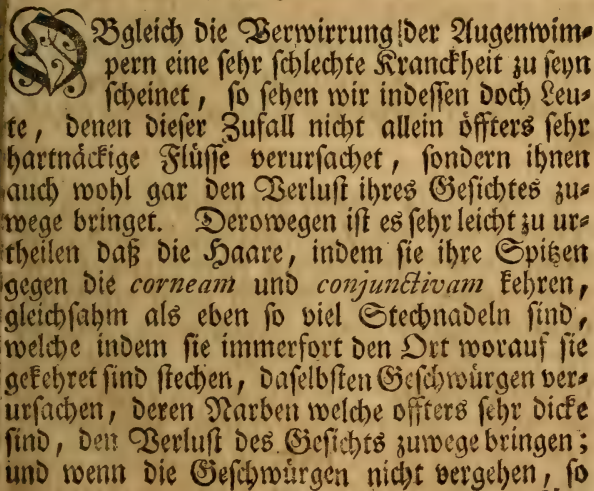 OBgleich die Verwirrung der Augenwim-
pern eine sehr schlechte Kranckheit zu seyn
scheinet, so sehen wir indessen doch Leu-
te, denen dieser Zufall nicht allein öffters sehr
hartnäckige Flüsse verursachet, sondern ihnen
auch wohl gar den Verlust ihres Gesichtes zu-
wege bringet. Derowegen ist es sehr leicht zu ur-
theilen daß die Haare, indem sie ihre Spitzen
gegen die corneam und conjunctivam kehren,
gleichsahm als eben so viel Stechnadeln sind,
welche indem sie immerfort den Ort worauf sie
gekehret sind stechen, daselbsten Geschwürgen ver-
ursachen, deren Narben welche offters sehr dicke
sind, den Verlust des Gesichts zuwege bringen;
und wenn die Geschwürgen nicht vergehen, so